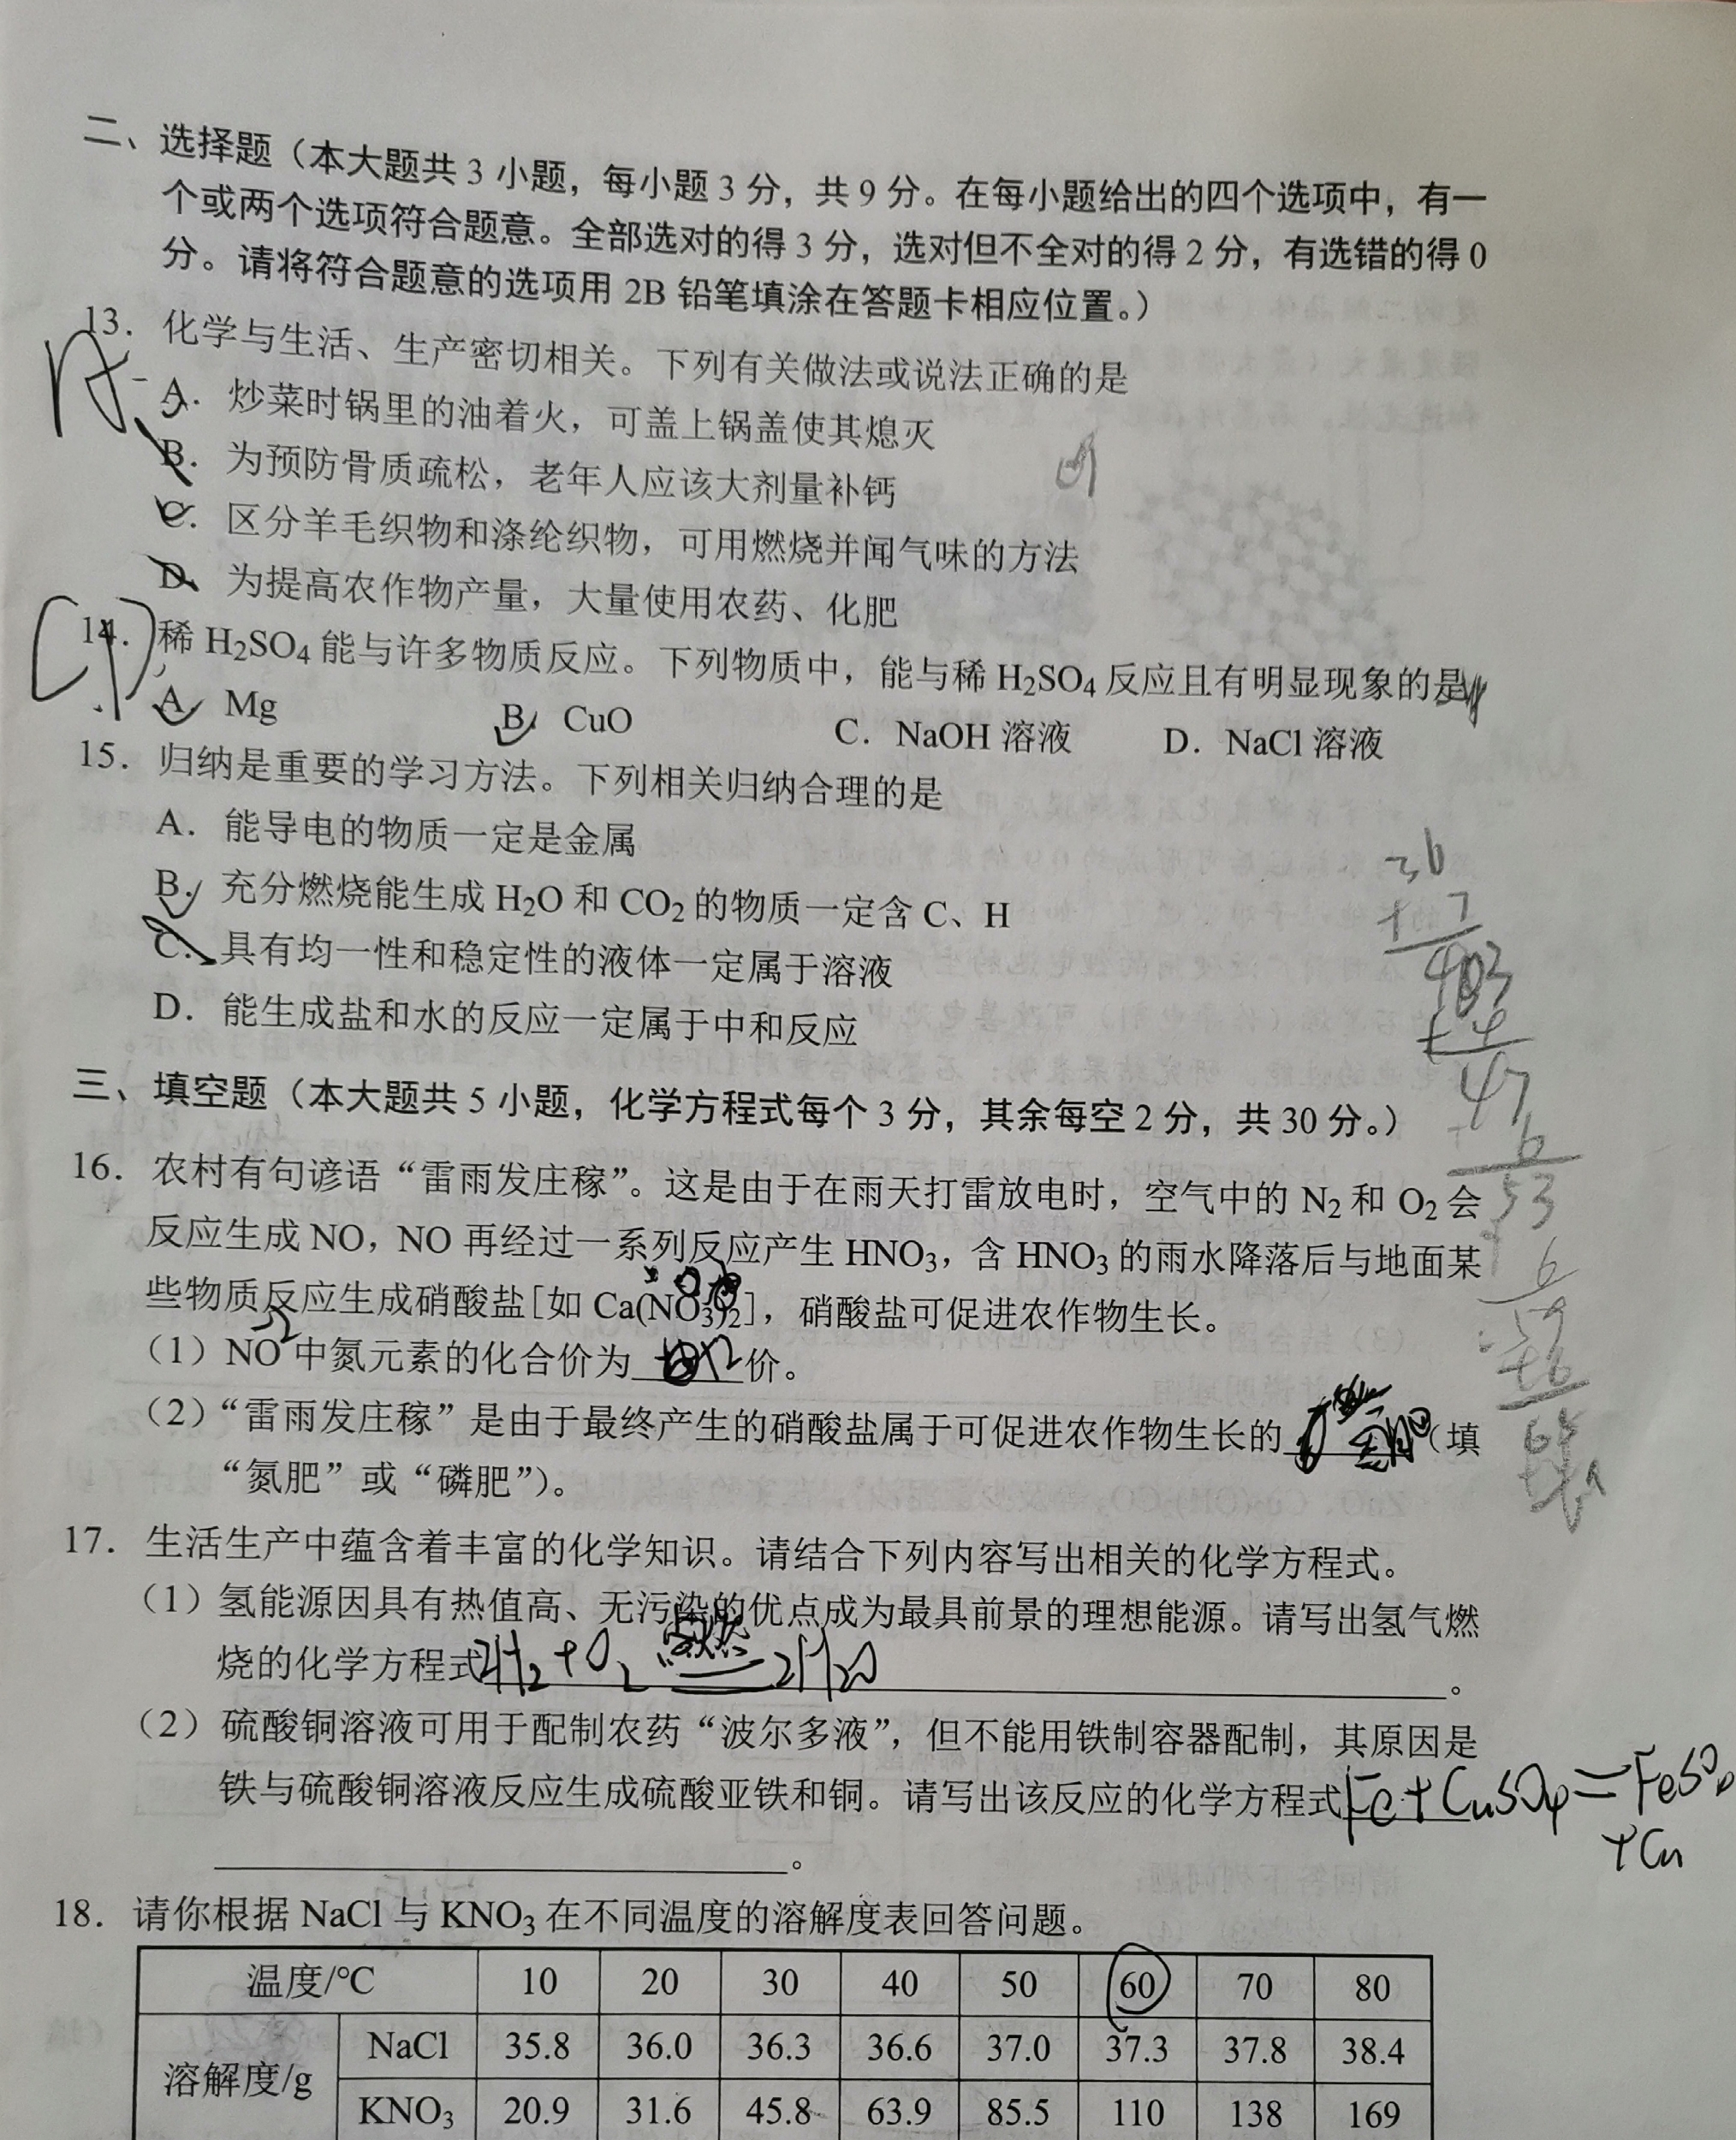 二、选择题（本大题共 3 小题，每小题 3 分，共 9 分。在每小题给出的四个选项中，有一
个或两个选项符合题意。全部选对的得 3 分，选对但不全对的得 2 分，有选错的得 0
分。请将符合题意的选项用 2B 铅笔填涂在答题卡相应位置。）
13．化学与生活、生产密切相关。下列有关做法或说法正确的是
A．炒菜时锅里的油着火，可盖上锅盖使其熄灭
B．为预防骨质疏松，老年人应该大剂量补钙
C．区分羊毛织物和涤纶织物，可用燃烧并闻气味的方法
D．为提高农作物产量，大量使用农药、化肥
14．稀 H₂SO₄ 能与许多物质反应。下列物质中，能与稀 H₂SO₄ 反应且有明显现象的是
A．Mg B．CuO C．NaOH 溶液 D．NaCl 溶液
15．归纳是重要的学习方法。下列相关归纳合理的是
A．能导电的物质一定是金属
B．充分燃烧能生成 H₂O 和 CO₂ 的物质一定含 C、H
C．具有均一性和稳定性的液体一定属于溶液
D．能生成盐和水的反应一定属于中和反应
三、填空题（本大题共 5 小题，化学方程式每个 3 分，其余每空 2 分，共 30 分。）
16．农村有句谚语“雷雨发庄稼”。这是由于在雨天打雷放电时，空气中的 N₂ 和 O₂ 会
反应生成 NO，NO 再经过一系列反应产生 HNO₃，含 HNO₃ 的雨水降落后与地面某
些物质反应生成硝酸盐[如 Ca(NO₃)₂]，硝酸盐可促进农作物生长。
（1）NO 中氮元素的化合价为 +2 价。
（2）“雷雨发庄稼”是由于最终产生的硝酸盐属于可促进农作物生长的 （填
“氮肥”或“磷肥”）。
17．生活生产中蕴含着丰富的化学知识。请结合下列内容写出相关的化学方程式。
（1）氢能源因具有热值高、无污染的优点成为最具前景的理想能源。请写出氢气燃
烧的化学方程式 2H₂+O₂ 点燃 2H₂O 。
（2）硫酸铜溶液可用于配制农药“波尔多液”，但不能用铁制容器配制，其原因是
铁与硫酸铜溶液反应生成硫酸亚铁和铜。请写出该反应的化学方程式 Fe+CuSO₄=FeSO₄
+Cu
。
18．请你根据 NaCl 与 KNO₃ 在不同温度的溶解度表回答问题。
温度/℃ 10 20 30 40 50 60 70 80
溶解度/g NaCl 35.8 36.0 36.3 36.6 37.0 37.3 37.8 38.4
KNO₃ 20.9 31.6 45.8 63.9 85.5 110 138 169